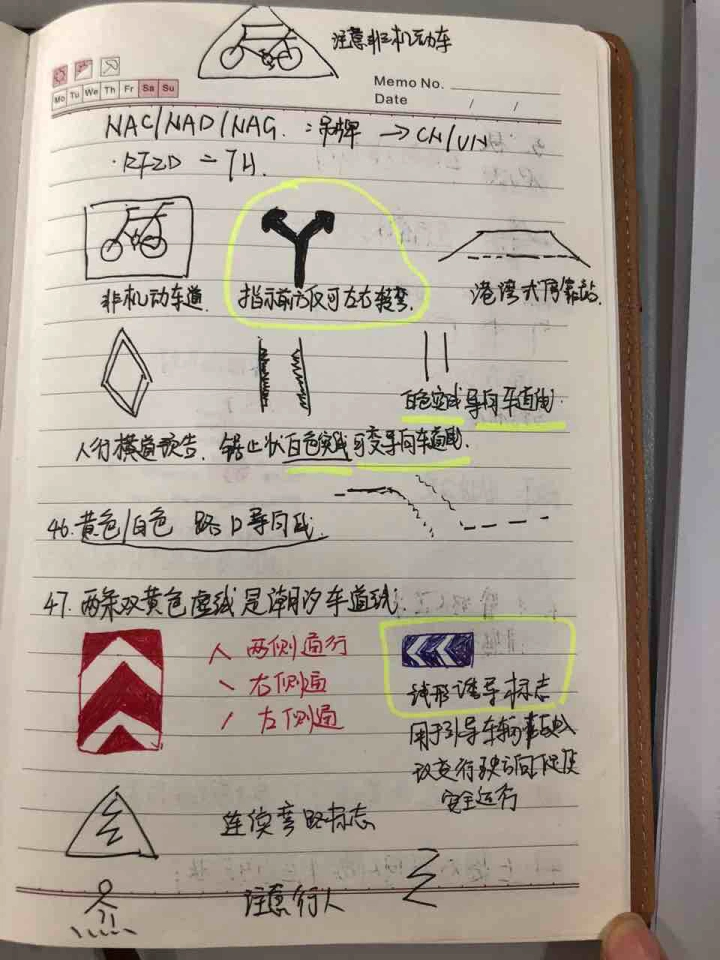 注意非机动车
Memo No.
Mo Tu We Th Fr Sa Su
Date / /
NAC/NAD/NAG. : 吊牌 → CN/VN
·RTZD = TH.
非机动车道.
指示前方仅可左右转弯.
港湾式停靠站.
白色实线导向车道线.
人行横道预告.
锯止状白色实线可变导向车道线.
46. 黄色/白色 路口导向线.
47. 两条双黄色虚线是潮汐车道线.
人 两侧通行
\ 右侧通
/ 左侧通
线形诱导标志
用于引导车辆驾驶人
改变行驶方向促使
安全运行
连续弯路标志
注意行人